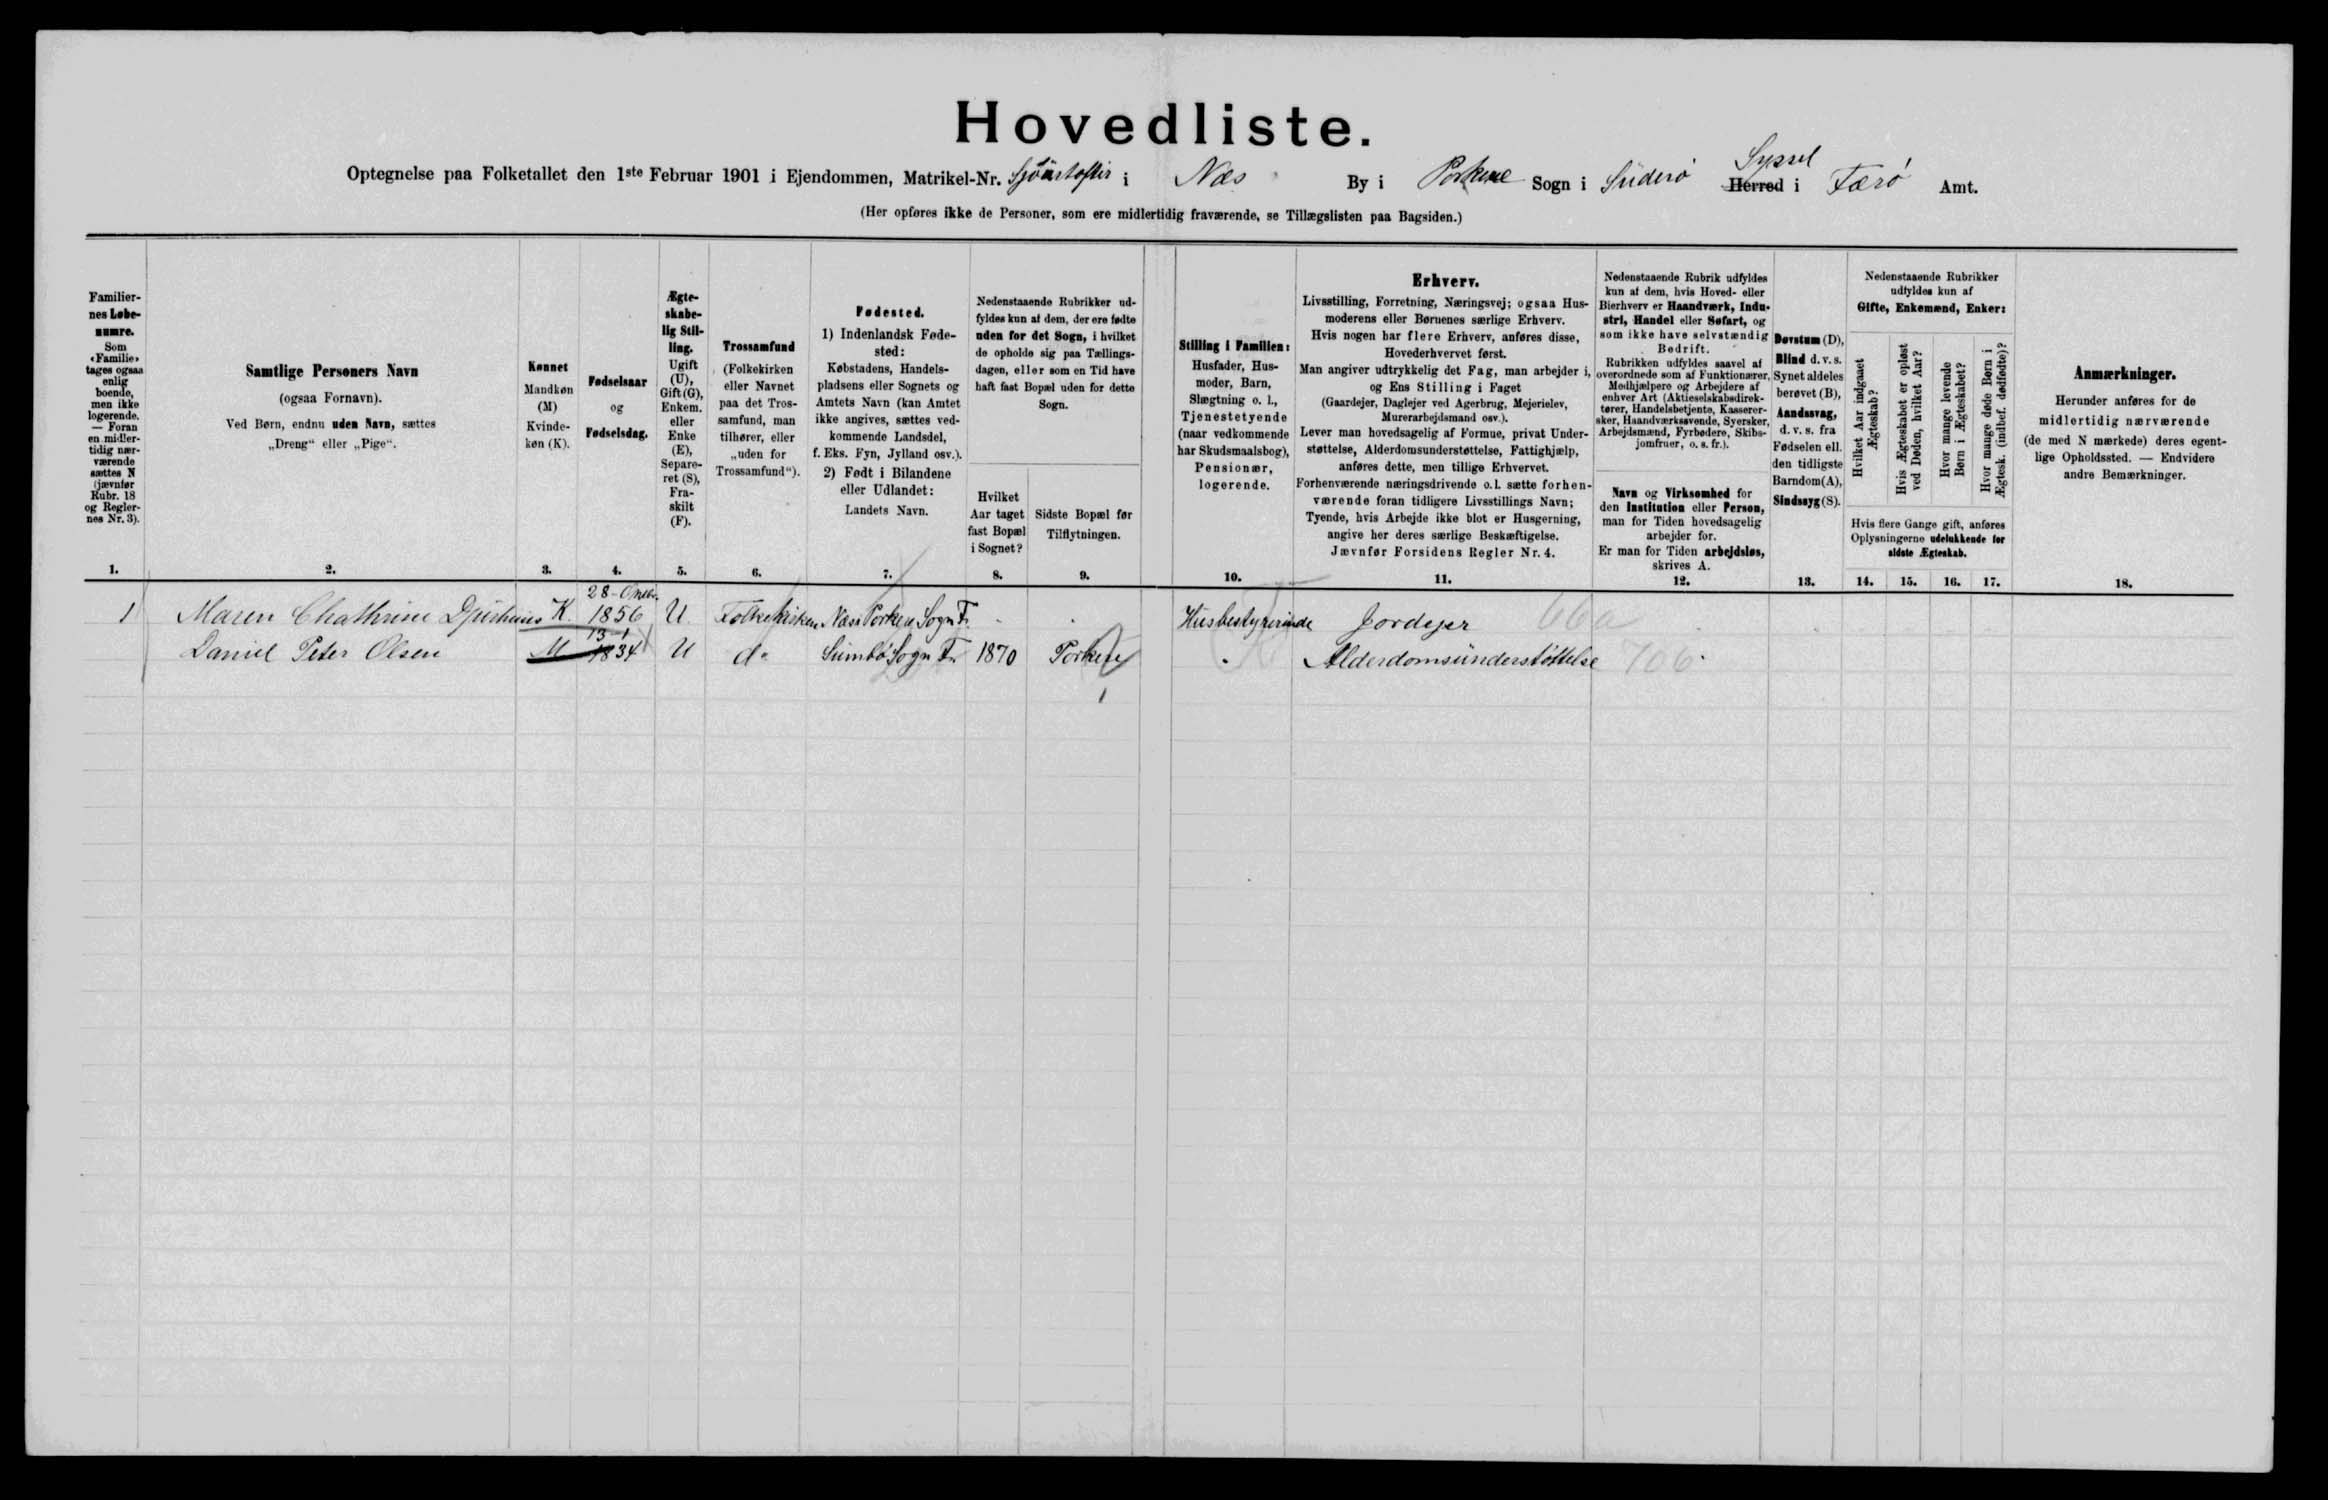 Hovedliste.
Optegnelse paa Folketallet den 1ste Februar 1901 i Ejendommen, Matrikel-Nr. i Næs By i Porkere Sogn i Süderö Herred Syssel i Færö Amt.
(Her opføres ikke de Personer, som ere midlertidig fraværende, se Tillægslisten paa Bagsiden.)
Familier-
nes Løbe-
numre.
Som
«Familie»
tages ogsaa
enlig
boende,
men ikke
logerende.
— Foran
en midler-
tidig nær-
værende
sættes N
(jævnfør
Rubr. 18
og Regler-
nes Nr. 3).
1.
Samtlige Personers Navn
(ogsaa Fornavn).
Ved Børn, endnu uden Navn, sættes
„Dreng“ eller „Pige“.
2.
Kønnet
Mandkøn
(M)
Kvinde-
køn (K).
3.
Fødselsaar
og
Fødselsdag.
4.
Ægte-
skabe-
lig Stil-
ling.
Ugift
(U),
Gift (G),
Enkem.
eller
Enke
(E),
Separe-
ret (S),
Fra-
skilt
(F).
5.
Trossamfund
(Folkekirken
eller Navnet
paa det Tros-
samfund, man
tilhører, eller
„uden for
Trossamfund“).
6.
Fødested.
1) Indenlandsk Føde-
sted:
Købstadens, Handels-
pladsens eller Sognets og
Amtets Navn (kan Amtet
ikke angives, sættes ved-
kommende Landsdel,
f. Eks. Fyn, Jylland osv.).
2) Født i Bilandene
eller Udlandet:
Landets Navn.
7.
Nedenstaaende Rubrikker ud-
fyldes kun af dem, der ere fødte
uden for det Sogn, i hvilket
de opholde sig paa Tællings-
dagen, eller som en Tid have
haft fast Bopæl uden for dette
Sogn.
Hvilket
Aar taget
fast Bopæl
i Sognet?
8.
Sidste Bopæl før
Tilflytningen.
9.
Stilling i Familien:
Husfader, Hus-
moder, Barn,
Slægtning o. l.,
Tjenestetyende
(naar vedkommende
har Skudsmaalsbog),
Pensionær,
logerende.
10.
Erhverv.
Livsstilling, Forretning, Næringsvej; ogsaa Hus-
moderens eller Børnenes særlige Erhverv.
Hvis nogen har flere Erhverv, anføres disse,
Hovederhvervet først.
Man angiver udtrykkelig det Fag, man arbejder i,
og Ens Stilling i Faget
(Gaardejer, Daglejer ved Agerbrug, Mejerielev,
Murerarbejdsmand osv.).
Lever man hovedsagelig af Formue, privat Under-
støttelse, Alderdomsunderstøttelse, Fattighjælp,
anføres dette, men tillige Erhvervet.
Forhenværende næringsdrivende o. l. sætte forhen-
værende foran tidligere Livsstillings Navn;
Tyende, hvis Arbejde ikke blot er Husgerning,
angive her deres særlige Beskæftigelse.
Jævnfør Forsidens Regler Nr. 4.
11.
Nedenstaaende Rubrik udfyldes
kun af dem, hvis Hoved- eller
Bierhverv er Haandværk, Indu-
stri, Handel eller Søfart, og
som ikke have selvstændig
Bedrift.
Rubrikken udfyldes saavel af
overordnede som af Funktionærer,
Medhjælpere og Arbejdere af
enhver Art (Aktieselskabsdirek-
tører, Handelsbetjente, Kasserer-
sker, Haandværkssvende, Syersker,
Arbejdsmænd, Fyrbødere, Skibs-
jomfruer, o. s. fr.).
Navn og Virksomhed for
den Institution eller Person,
man for Tiden hovedsagelig
arbejder for.
Er man for Tiden arbejdsløs,
skrives A.
12.
Døvstum (D),
Blind d. v. s.
Synet aldeles
berøvet (B),
Aandssvag,
d. v. s. fra
Fødselen ell.
den tidligste
Barndom (A),
Sindssyg (S).
13.
Nedenstaaende Rubrikker
udfyldes kun af
Gifte, Enkemænd, Enker:
Hvilket Aar indgaaet
Ægteskab?
Hvis Ægteskabet er opløst
ved Døden, hvilket Aar?
Hvor mange levende
Børn i Ægteskabet?
Hvor mange døde Børn i
Ægtesk. (indbef. dødfødte)?
Hvis flere Gange gift, anføres
Oplysningerne udelukkende for
sidste Ægteskab.
14. 15. 16. 17.
Anmærkninger.
Herunder anføres for de
midlertidig nærværende
(de med N mærkede) deres egent-
lige Opholdssted. — Endvidere
andre Bemærkninger.
18.
1 Maren Chathrine Djurhuus K. 28- 1856 U. Folkekirken Næs Porkere Sogn F. Husbestyrerinde Jordejer 66a
Daniel Peter Olsen M 13-1 1834 U do Sumbø Sogn F. 1870 Porkere Alderdomsünderstøttelse 706